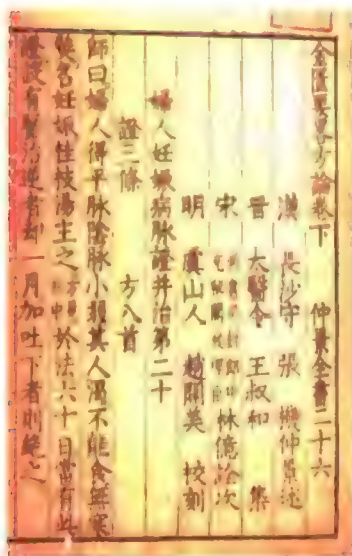 金匱要略方論卷下 仲景全書二十六
漢 長沙守 張 機仲景述
晉 太醫令 王叔和 集
宋 林億詮次
明 虞山人 趙開美 校刻
婦人妊娠病脉證并治第二十
證三條 方八首
師曰婦人得平脉陰脉小弱其人渴不能食無寒
熱名妊娠桂枝湯主之 於法六十日當有此
證設有醫治逆者却一月加吐下者則絕之